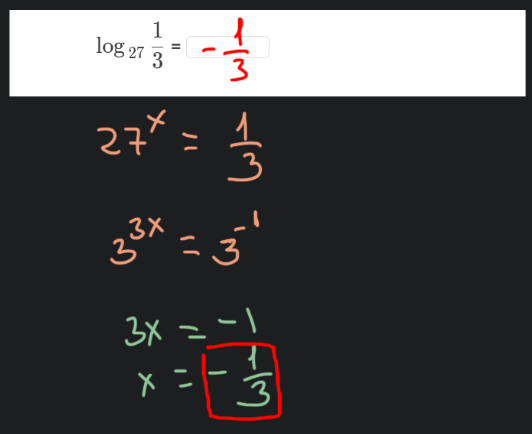 log₂₇ 1/3 = -1/3
27ˣ = 1/3
3³ˣ = 3⁻¹
3x = -1
x = -1/3